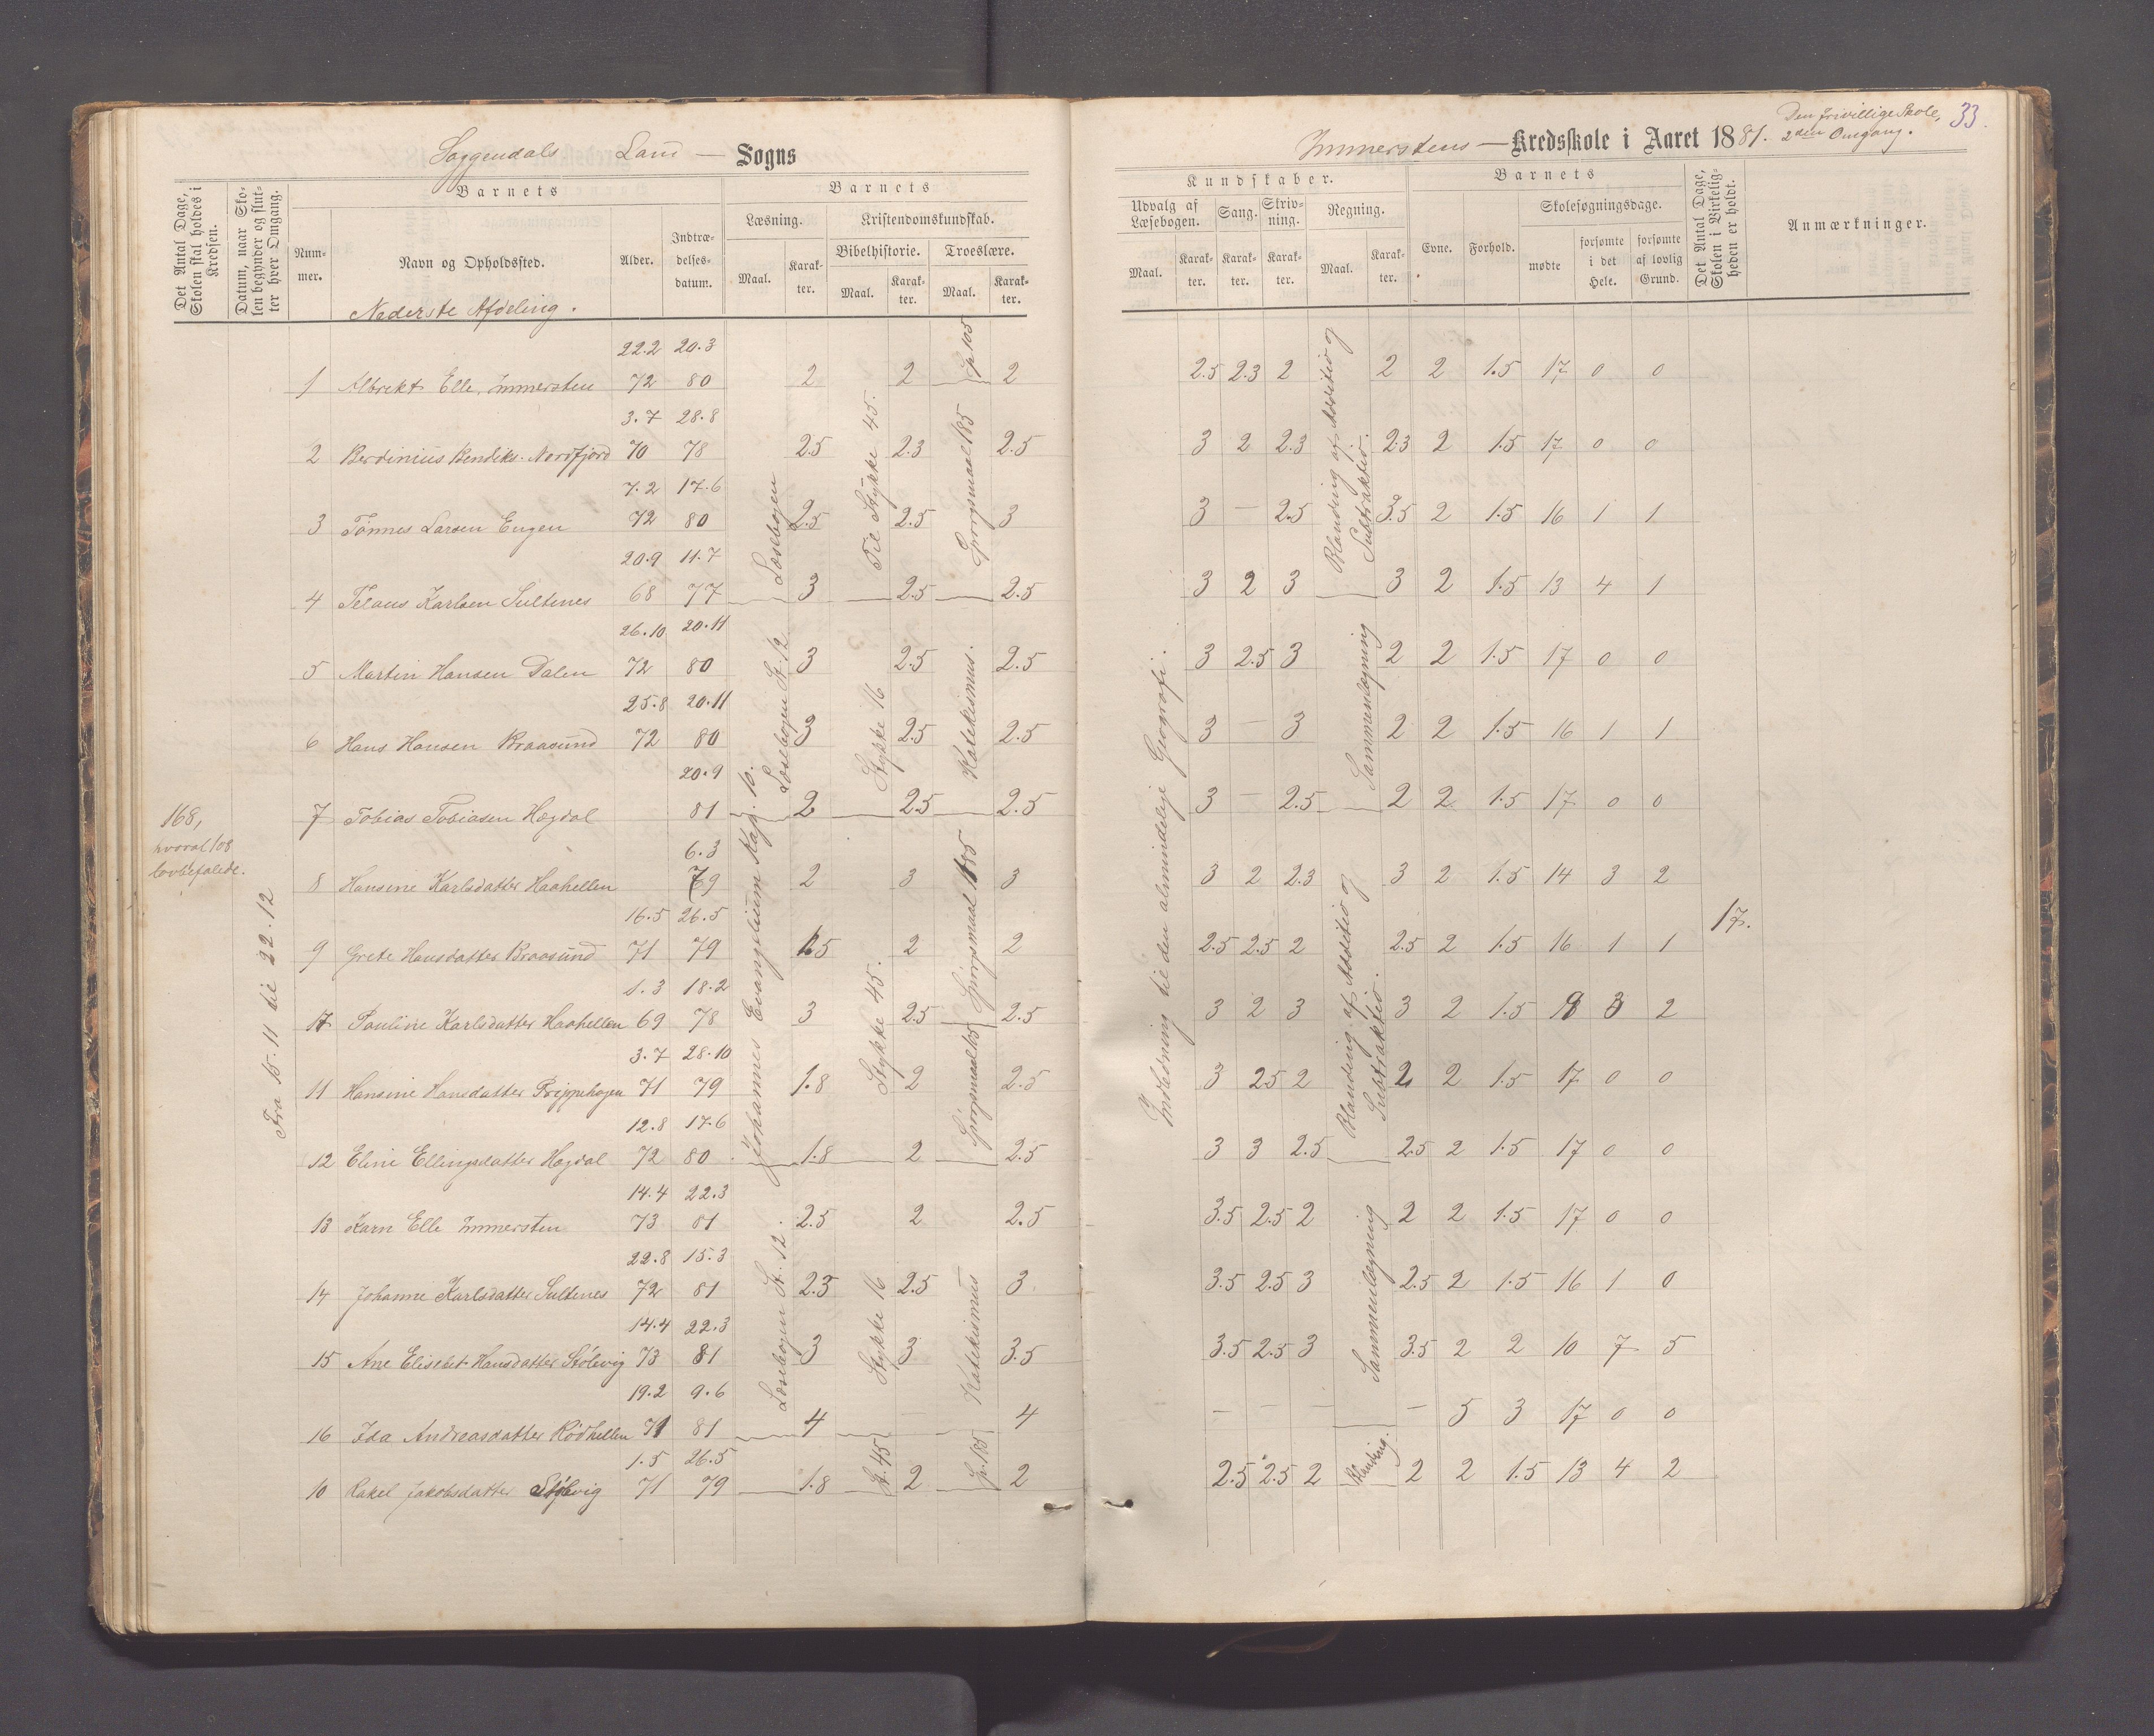 Soggendals Land — Sogns
Immerstens — Kredsskole i Aaret 1881.
Den frivillige Skole,
2den Omgang.
33.
Det Antal Dage, Skolen skal holdes i Kredsen.
Datum, naar Skolen begynder og slutter hver Omgang.
Barnets
Nummer.
Navn og Opholdssted.
Alder.
Indtrædelsesdatum.
Barnets
Læsning.
Maal.
Karakter.
Kristendomskundskab.
Bibelhistorie.
Maal.
Karakter.
Troeslære.
Maal.
Karakter.
Kundskaber.
Udvalg af Læsebogen.
Maal.
Karakter.
Sang.
Karakter.
Skrivning.
Karakter.
Regning.
Maal.
Karakter.
Barnets
Evne.
Forhold.
Skolesøgningsdage.
mødte
forsømte i det Hele.
forsømte af lovlig Grund.
Det Antal Dage, Skolen i Virkeligheden er holdt.
Anmærkninger.
Nederste Afdeling.
22.2 20.3
1 Albrekt Elle, Immersten 72 80 2 2 2 2.5 2.3 2 2 2 1.5 17 0 0
3.7 28.8
2 Berdinius Bendiks. Nordfjord 70 78 2.5 2.3 2.5 3 2 2.3 2.3 2 1.5 17 0 0
7.2 17.6
3 Tønnes Larsen Eugen 72 80 2.5 2.5 3 3 — 2.5 3.5 2 1.5 16 1 1
20.9 11.7
4 Telaus Karlsen Sultenes 68 77 3 2.5 2.5 3 2 3 3 2 1.5 13 4 1
26.10 20.11
5 Martin Hansen Dalen 72 80 3 2.5 2.5 3 2.5 3 2 2 1.5 17 0 0
25.8 20.11
6 Hans Hansen Braasund 72 80 3 2.5 2.5 3 — 3 2 2 1.5 16 1 1
20.9
7 Tobias Tobiasen Hægdal 81 2 2.5 2.5 3 — 2.5 2 2 1.5 17 0 0
6.3
8 Hansine Karlsdatter Haahellen 79 2 3 3 3 2 2.3 3 2 1.5 14 3 2
16.5 26.5
9 Grete Hansdatter Braasund 71 79 1.5 2 2 2.5 2.5 2 2.5 2 1.5 16 1 1
1.3 18.2
17 Pauline Karlsdatter Haahellen 69 78 3 2.5 2.5 3 2 3 3 2 1.5 3 2
3.7 28.10
11 Hansine Hansdatter Trippehagen 71 79 1.8 2 2.5 3 2.5 2 2 2 1.5 17 0 0
12.8 17.6
12 Eline Ellingsdatter Hægdal 72 80 1.8 2 2.5 3 3 2.5 2.5 2 1.5 17 0 0
14.4 22.3
13 Karn Elle Immersten 73 81 2.5 2 2.5 3.5 2.5 2 2 2 1.5 17 0 0
22.8 15.3
14 Johanne Karlsdatter Sultenes 72 81 2.5 2.5 3 3.5 2.5 3 2.5 2 1.5 16 1 0
14.4 22.3
15 Ane Elisebet Hansdatter Stølsvig 73 81 3 3 3.5 3.5 2.5 3 3.5 2 2 10 7 5
19.2 9.6
16 Ida Andreasdatter Rødhellen 71 81 4 — 4 — — — — 5 3 17 0 0
1.5 26.5
10 Rakel Jakobsdatter Stølsvig 71 79 1.8 2 2 2.5 2.5 2 2 2 1.5 13 4 2
168,
hvoraf 108
lovbefalede.
Fra 15.11 til 22.12
Læsebogen
Læsebogen St. 12
Johannes Evangelium Kap. 10.
Læsebogen St. 12.
Til Stykke 45.
Stykke 16
Stykke 45.
Stykke 16
St. 45
Sp. 105
Spørgsmaal 185
Katekismus.
Spørgsmaal 185
Spørgsmaal
Katekismus
Sp. 185
Indledning til den almindelige Geografi.
Blanding af Additio og Subtraktio.
Sammenlægning
Blanding af Additio og Subtraktio.
Sammenlægning
Blanding.
17.